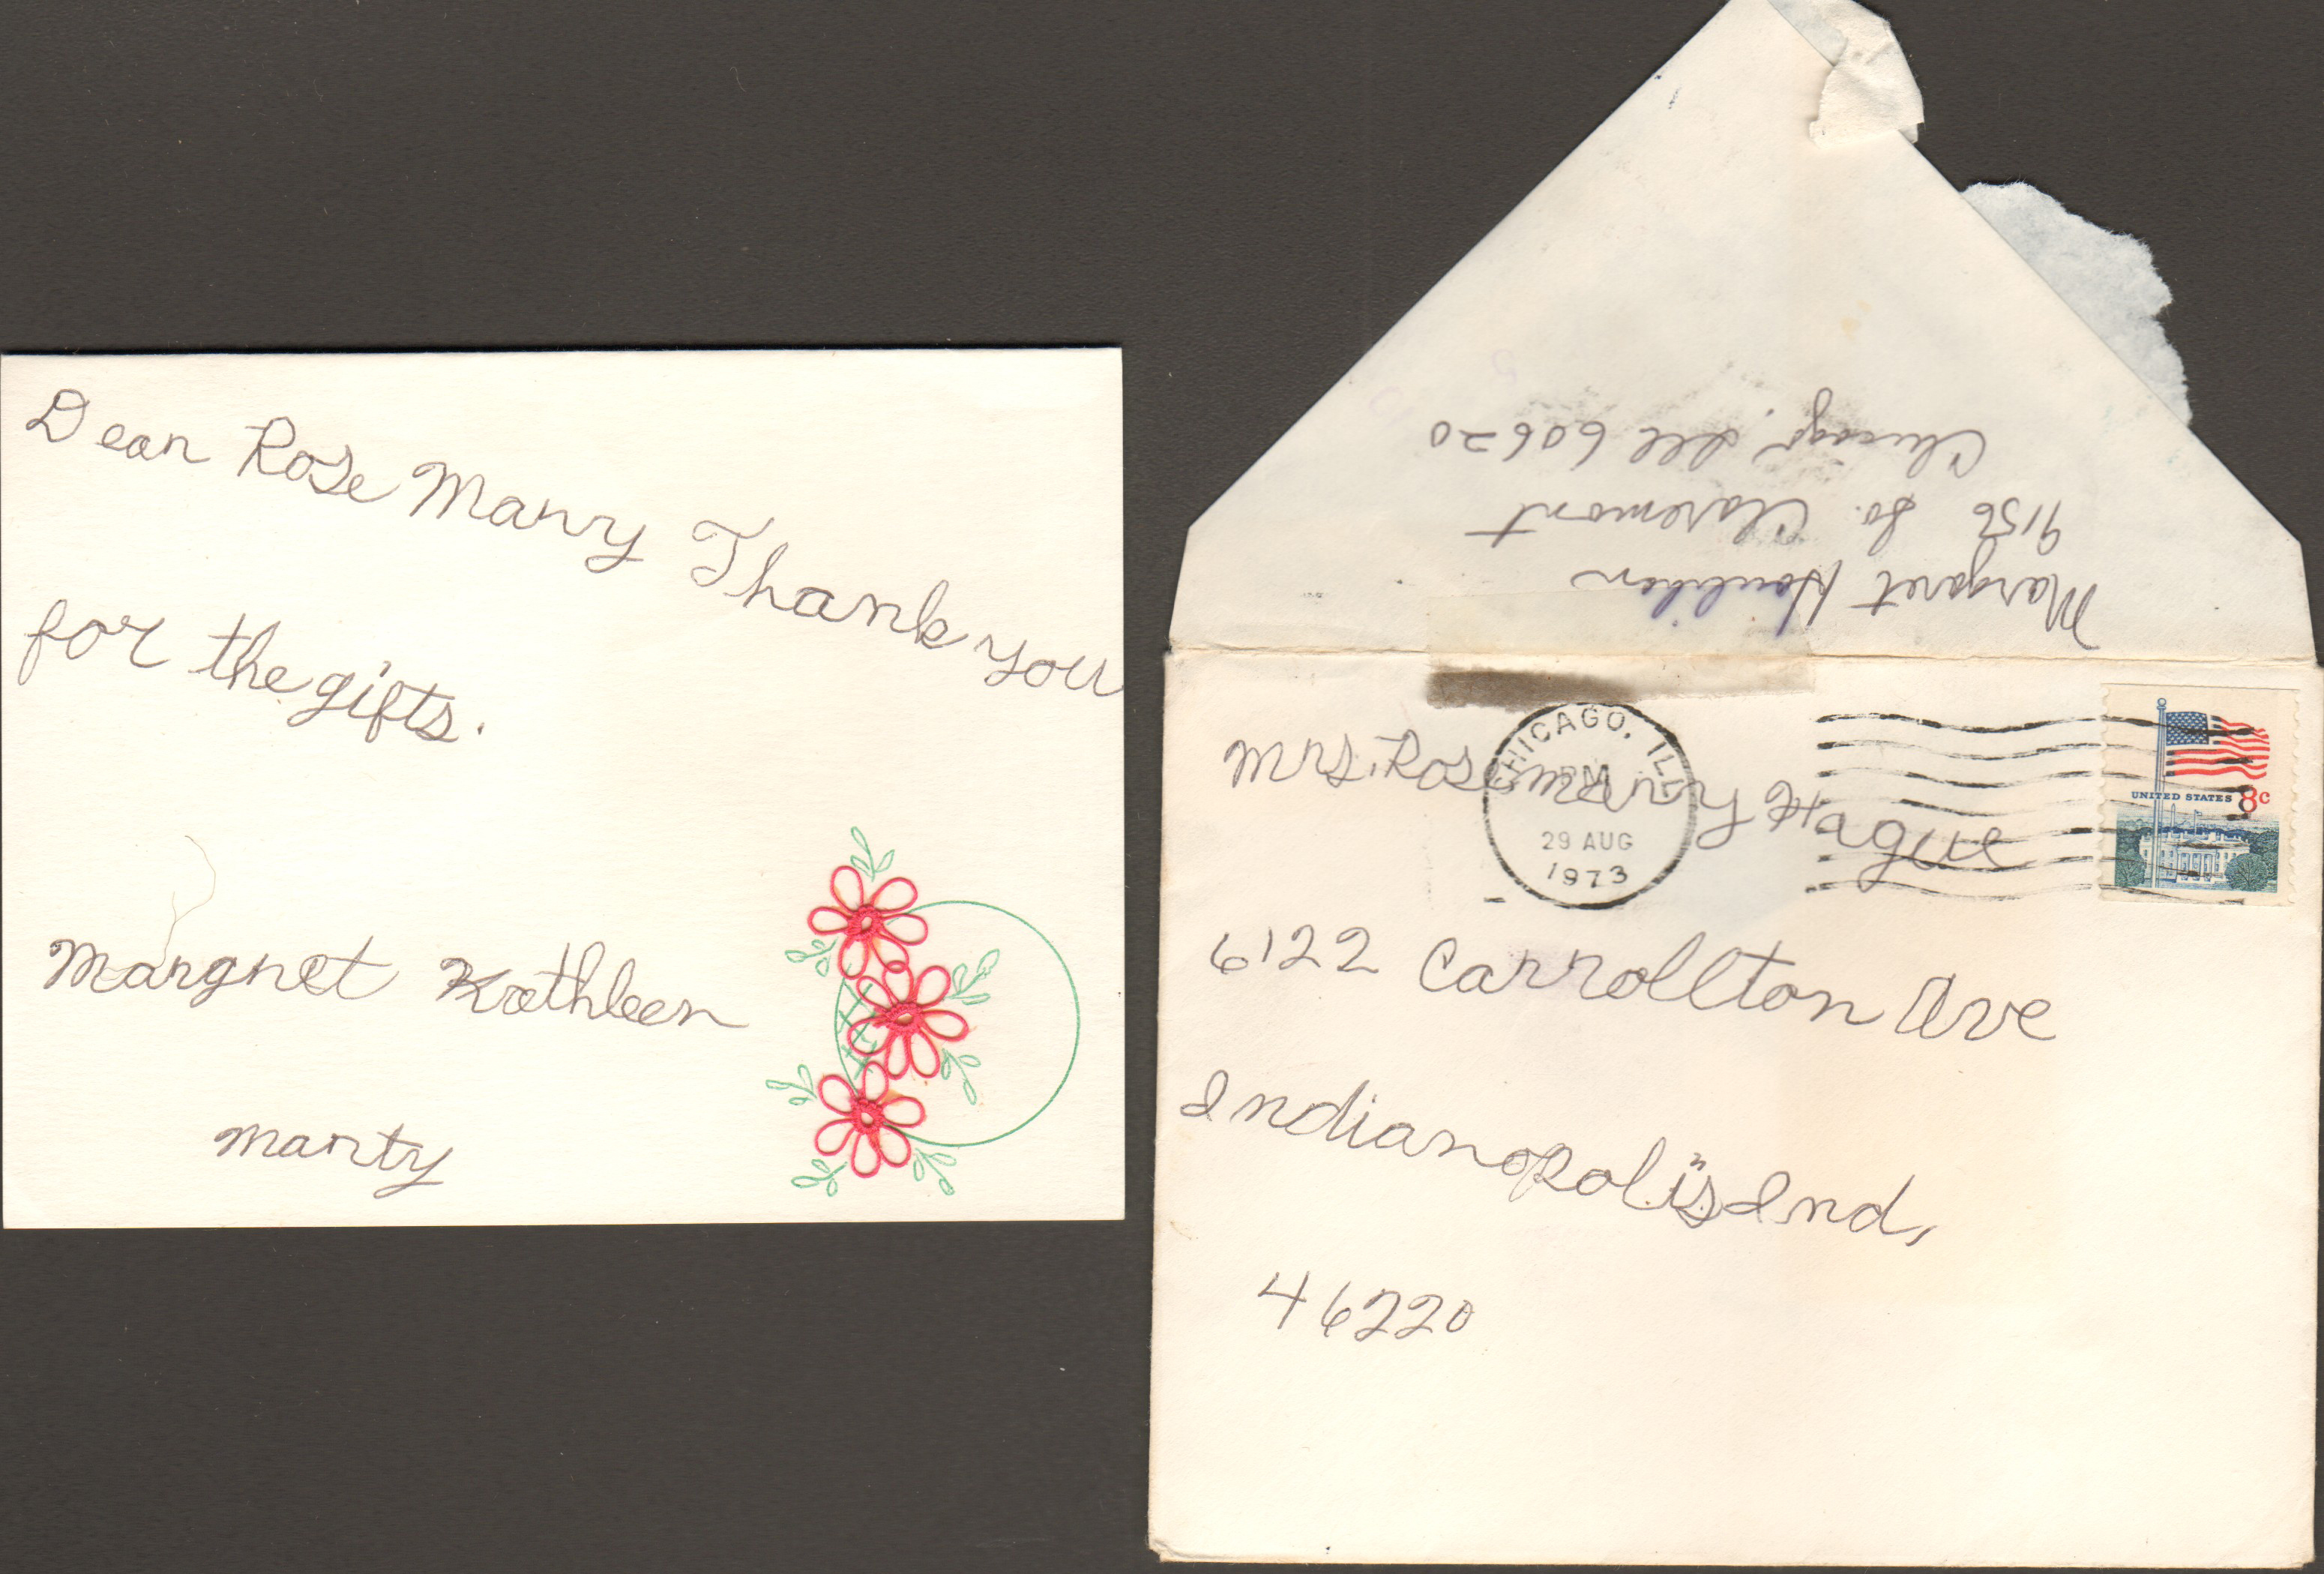 Dear Rose Many Thank you
for the gifts.
Margret Kathleen
Marty
Margaret Houlihan
9156 So. Claremont
Chicago, Ill 60620
CHICAGO, ILL
PM
29 AUG
1973
UNITED STATES 8c
Mrs. Rosemary Hague
6122 Carrollton Ave
Indianopolis Ind,
46220